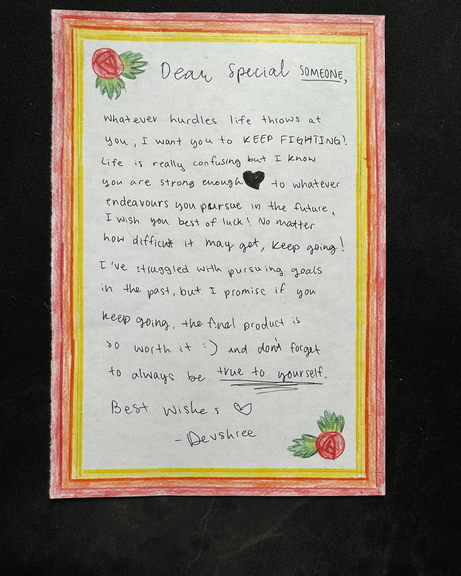 Dear Special SOMEONE,
Whatever hurdles life throws at
you, I want you to KEEP FIGHTING!
Life is really confusing but I know
you are strong enough to whatever
endeavours you pursue in the future,
I wish you best of luck! No matter
how difficult it may get, keep going!
I've struggled with pursuing goals
in the past, but I promise if you
keep going, the final product is
so worth it :) and don't forget
to always be true to yourself.
Best Wishes
- Devshree